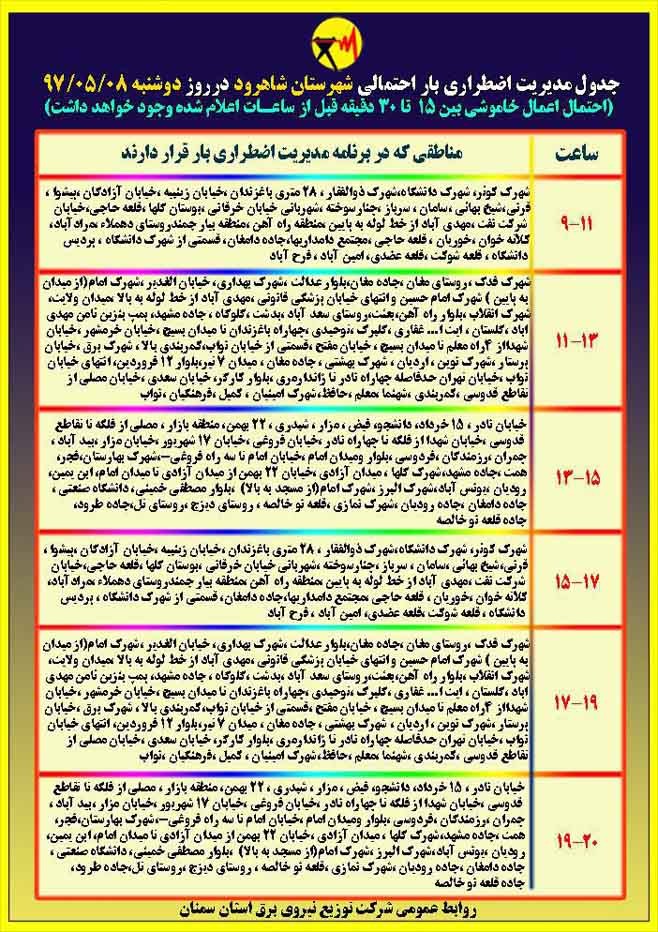 جدول مدیریت اضطراری بار احتمالی شهرستان شاهرود در روز دوشنبه ۹۷/۰۵/۰۸
(احتمال اعمال خاموشی بین ۱۵ تا ۳۰ دقیقه قبل از ساعات اعلام شده وجود خواهد داشت)
ساعت
مناطقی که در برنامه مدیریت اضطراری بار قرار دارند
۹-۱۱
شهرک کوثر، شهرک دانشگاه،شهرک ذوالفقار ، ۲۸ متری باغزندان ،خیابان زینبیه ،خیابان آزادگان ،پیشوا ،
قرنی،شیخ بهائی ،سامان ، سرباز ،چنارسوخته ،شهربانی خیابان خرقانی ،بوستان گلها ،قلعه حاجی،خیابان
شرکت نفت ،مهدی آباد از خط لوله به پایین ،منطقه راه آهن ،منطقه بیار جمندروستای دهملاء ،مرادآباد،
کلاته خوان ،خوریان ، قلعه حاجی ،مجتمع دامداریها،جاده دامغان،قسمتی از شهرک دانشگاه ، پردیس
دانشگاه ، قلعه شوکت ،قلعه عضدی، امین آباد ، فرح آباد
۱۱-۱۳
شهرک فدک ، روستای مغان ،جاده مغان،بلوار عدالت ،شهرک بهداری، خیابان الغدیر ،شهرک امام(از میدان
به پایین ) شهرک امام حسین و انتهای خیابان پزشکی قانونی ،مهدی آباد از خط لوله به بالا ،میدان ولایت،
شهرک انقلاب ،بلوار راه آهن،بعثت،روستای سعد آباد ،بدشت ،کلوکاه ، جاده مشهد، پمپ بنزین ثامن مهدی
آباد ، گلستان ، آیت ا... غفاری ، گلبرگ ،توحیدی ،چهاراه باغزندان تا میدان بسیج ،خیابان خرمشهر ،خیابان
شهدااز ۴راه معلم تا میدان بسیج ، خیابان مفتح ،قسمتی از خیابان نواب،کمربندی بالا ، شهرک برق ،خیابان
پرستار ،شهرک نوین ، اردیان ، شهرک بهشتی ، جاده مغان ، میدان ۷ تیر،بلوار ۱۲ فروردین، انتهای خیابان
نواب ،خیابان تهران حدفاصله چهاراه نادر تا ژاندارمری ،بلوار کارگر، خیابان سعدی ،خیابان مصلی از
تقاطع فدوسی ، کمربندی، شهنما ،معلم ،حافظ،شهرک امینیان ، کمیل ،فرهنگیان ، نواب
۱۳-۱۵
خیابان نادر ، ۱۵ خرداد، دانشجو، فیض ، مزار ، شیدری ، ۲۲ بهمن، منطقه بازار ، مصلی از فلکه تا تقاطع
فدوسی ،خیابان شهدا از فلکه تا چهاراه نادر، خیابان فروغی ،خیابان ۱۷ شهریور ،خیابان مزار ،بید آباد ،
چمران ،رزمندگان ،فردوسی ،بلوار ومیدان امام ،خیابان امام تا سه راه فروغی–،شهرک بهارستان،فجر،
همت ،جاده مشهد،شهرک گلها ، میدان آزادی ، خیابان ۲۲ بهمن از میدان آزادی تا میدان امام، ابن یمین،
رودیان ،یونس آباد،شهرک البرز ، شهرک امام(از مسجد به بالا) ،بلوار مصطفی خمینی، دانشگاه صنعتی ،
جاده دامغان ،جاده رودیان ،شهرک نمازی ،قلعه نو خالصه ، روستای دیزج ،روستای تل،جاده طرود،
جاده قلعه نو خالصه
۱۵-۱۷
شهرک کوثر، شهرک دانشگاه،شهرک ذوالفقار ، ۲۸ متری باغزندان ،خیابان زینبیه ،خیابان آزادگان ،پیشوا ،
قرنی،شیخ بهائی ،سامان ، سرباز ،چنارسوخته ،شهربانی خیابان خرقانی ،بوستان گلها ،قلعه حاجی،خیابان
شرکت نفت ،مهدی آباد از خط لوله به پایین ،منطقه راه آهن ،منطقه بیار جمندروستای دهملاء ،مرادآباد،
کلاته خوان ،خوریان ، قلعه حاجی ،مجتمع دامداریها،جاده دامغان،قسمتی از شهرک دانشگاه ، پردیس
دانشگاه ، قلعه شوکت ،قلعه عضدی، امین آباد ، فرح آباد
۱۷-۱۹
شهرک فدک ، روستای مغان ،جاده مغان،بلوار عدالت ،شهرک بهداری، خیابان الغدیر ،شهرک امام(از میدان
به پایین ) شهرک امام حسین و انتهای خیابان پزشکی قانونی ،مهدی آباد از خط لوله به بالا ،میدان ولایت،
شهرک انقلاب ،بلوار راه آهن،بعثت،روستای سعد آباد ،بدشت ،کلوکاه ، جاده مشهد، پمپ بنزین ثامن مهدی
آباد ، گلستان ، آیت ا... غفاری ، گلبرگ ،توحیدی ،چهاراه باغزندان تا میدان بسیج ،خیابان خرمشهر ،خیابان
شهدااز ۴راه معلم تا میدان بسیج ، خیابان مفتح ،قسمتی از خیابان نواب،کمربندی بالا ، شهرک برق ،خیابان
پرستار ،شهرک نوین ، اردیان ، شهرک بهشتی ، جاده مغان ، میدان ۷ تیر،بلوار ۱۲ فروردین، انتهای خیابان
نواب ،خیابان تهران حدفاصله چهاراه نادر تا ژاندارمری ،بلوار کارگر، خیابان سعدی ،خیابان مصلی از
تقاطع فدوسی ، کمربندی، شهنما ،معلم ،حافظ،شهرک امینیان ، کمیل ،فرهنگیان ، نواب
۱۹-۲۰
خیابان نادر ، ۱۵ خرداد، دانشجو، فیض ، مزار ، شیدری ، ۲۲ بهمن، منطقه بازار ، مصلی از فلکه تا تقاطع
فدوسی ،خیابان شهدا از فلکه تا چهاراه نادر، خیابان فروغی ،خیابان ۱۷ شهریور ،خیابان مزار ،بید آباد ،
چمران ،رزمندگان ،فردوسی ،بلوار ومیدان امام ،خیابان امام تا سه راه فروغی–،شهرک بهارستان،فجر،
همت ،جاده مشهد،شهرک گلها ، میدان آزادی ، خیابان ۲۲ بهمن از میدان آزادی تا میدان امام، ابن یمین،
رودیان ،یونس آباد،شهرک البرز ، شهرک امام(از مسجد به بالا) ،بلوار مصطفی خمینی، دانشگاه صنعتی ،
جاده دامغان ،جاده رودیان ،شهرک نمازی ،قلعه نو خالصه ، روستای دیزج ،روستای تل،جاده طرود،
جاده قلعه نو خالصه
روابط عمومی شرکت توزیع نیروی برق استان سمنان